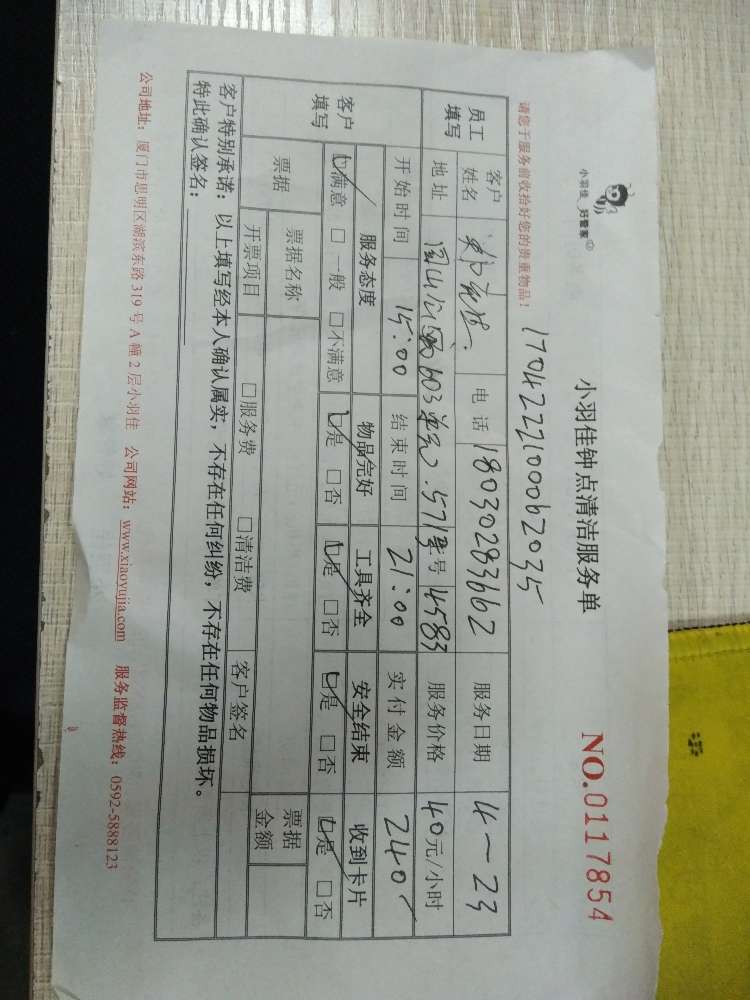 小羽佳 好管家
小羽佳钟点清洁服务单
NO.0117854
请您于服务前收拾好您的贵重物品！
1704222100062035
员工填写
客户姓名
电话 18030283662
服务日期 4-23
地址 603单元.571
号 4583
服务价格 40元/小时
开始时间 15:00
结束时间 21:00
实付金额 240
客户填写
服务态度 物品完好 工具齐全 安全结束 收到卡片
☑满意 □一般 □不满意 ☑是 □否 ☑是 □否 ☑是 □否 ☑是 □否
票据 票据名称 票据金额
开票项目 □服务费 □清洁费 客户签名
客户特别承诺：以上填写经本人确认属实，不存在任何纠纷，不存在任何物品损坏。
特此确认签名：
公司地址：厦门市思明区湖滨东路319号A幢2层小羽佳 公司网站：www.xiaoyujia.com 服务监督热线：0592-5888123